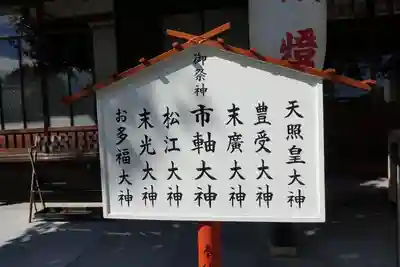 御祭神
天照皇大神
豊受大神
末廣大神
市軸大神
松江大神
末光大神
お多福大神